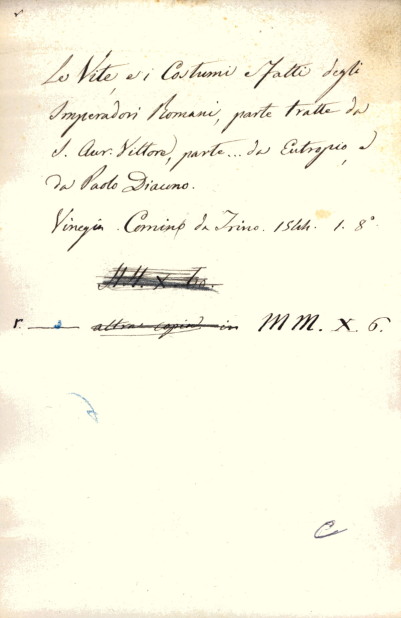 Le Vite, e i Costumi e Fatti degli
Imperadori Romani, parte tratte da
S. Aur. Vittore, parte... da Eutropio, e
da Paolo Diacono.
Vinegia. Comino da Trino. 1544. 1. 8º
r. altra copia in MM. X. 6.
C